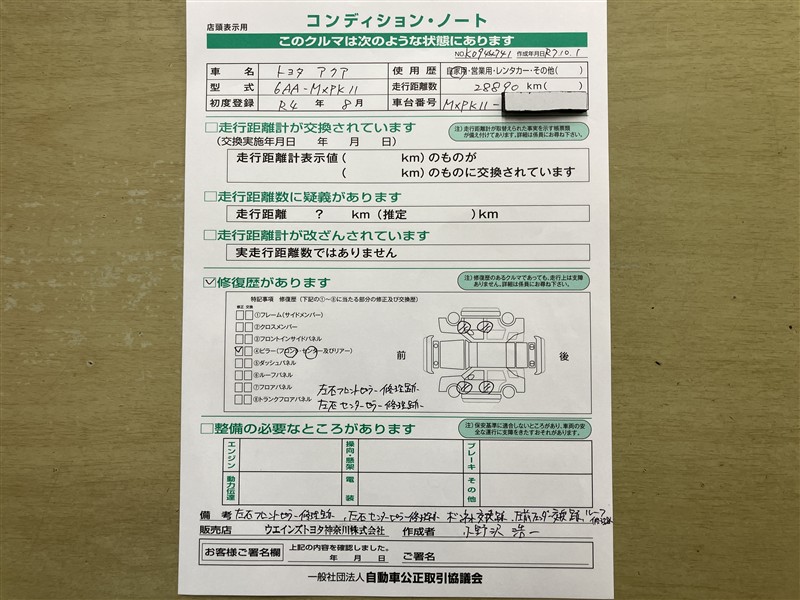 店頭表示用
コンディション・ノート
このクルマは次のような状態にあります
NO. K0944741 作成年月日 R7.10.1
車名 トヨタ アクア 使用歴 自家用・営業用・レンタカー・その他( )
型式 6AA-MXPK11 走行距離数 28890 km( )
初度登録 R4 年 8 月 車台番号 MXPK11-
□走行距離計が交換されています
(交換実施年月日 年 月 日)
注)走行距離計が取替えられた事実を示す帳票類が備え付けてあります。詳細は係員にお尋ね下さい。
走行距離計表示値( km)のものが
( km)のものに交換されています
□走行距離数に疑義があります
走行距離 ? km(推定 )km
□走行距離計が改ざんされています
実走行距離数ではありません
☑修復歴があります
注)修復歴のあるクルマであっても、走行上は支障ありません。詳細は係員にお尋ね下さい。
特記事項 修復歴(下記の①~⑧に当たる部分の修正及び交換歴)
修正 交換
①フレーム(サイドメンバー)
②クロスメンバー
③フロントインサイドパネル
④ピラー(フロント・センター及びリアー)
⑤ダッシュパネル
⑥ルーフパネル
⑦フロアパネル
⑧トランクフロアパネル
前
後
左右フロントピラー修理跡
左右センターピラー修理跡
□整備の必要なところがあります
注)保安基準に適合しないところがあり、車両の安全な運行に支障をきたすおそれがあります。
エンジン 操向・懸架 ブレーキ
動力伝達 電装 その他
備考 左右フロントピラー修理跡、左右センターピラー修理跡 ルーフ修理跡
販売店 ウエインズトヨタ神奈川株式会社 作成者
お客様ご署名欄 上記の内容を確認しました。
年 月 日 ご署名
一般社団法人 自動車公正取引協議会